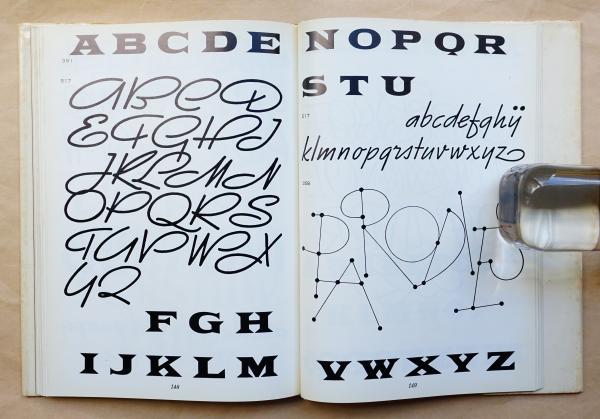 A B C D E
391
517
A B C D
E F G H I J
J K L M N
O P Q R S
T U V W X
Y Z
F G H
I J K L M
148
N O P Q R
S T U
517
abcdefghij
klmnopqrstuvwxyz
V W X Y Z
149